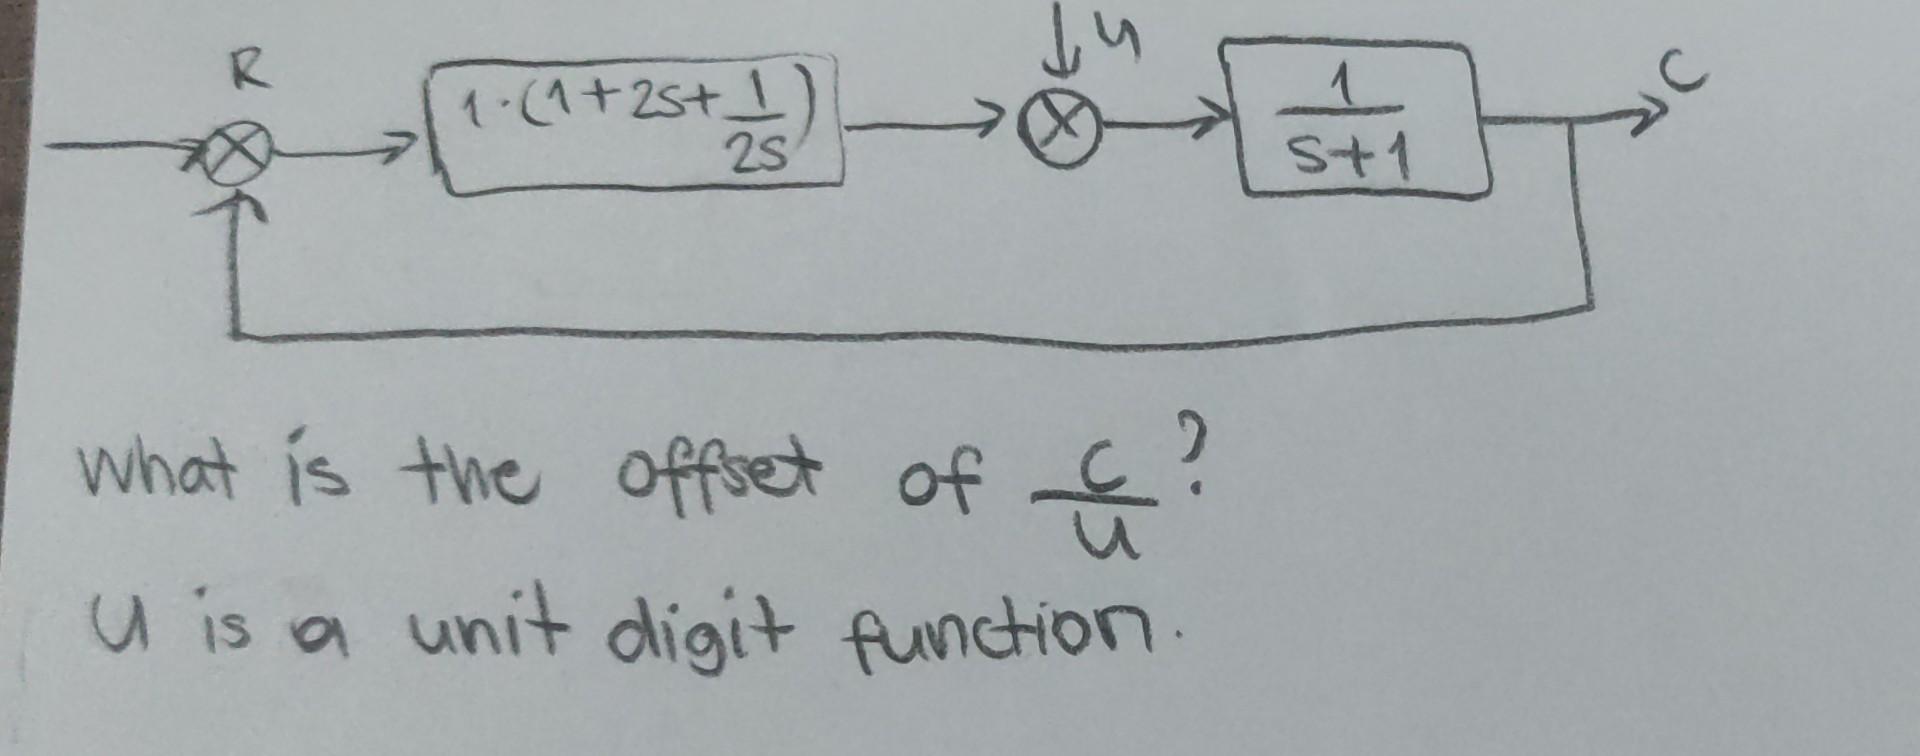 R
1·(1+2s+1/2s)
u
1/s+1
C
What is the offset of C/u?
u is a unit digit function.